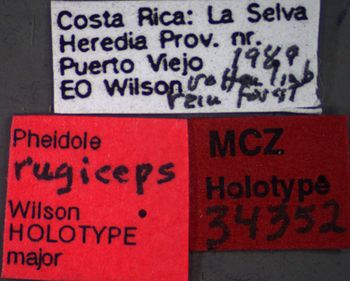 Costa Rica: La Selva
Heredia Prov. nr.
Puerto Viejo 1989
EO Wilson rotten limb
rain forest
Pheidole
rugiceps
Wilson
HOLOTYPE
major
MCZ
Holotype
34352